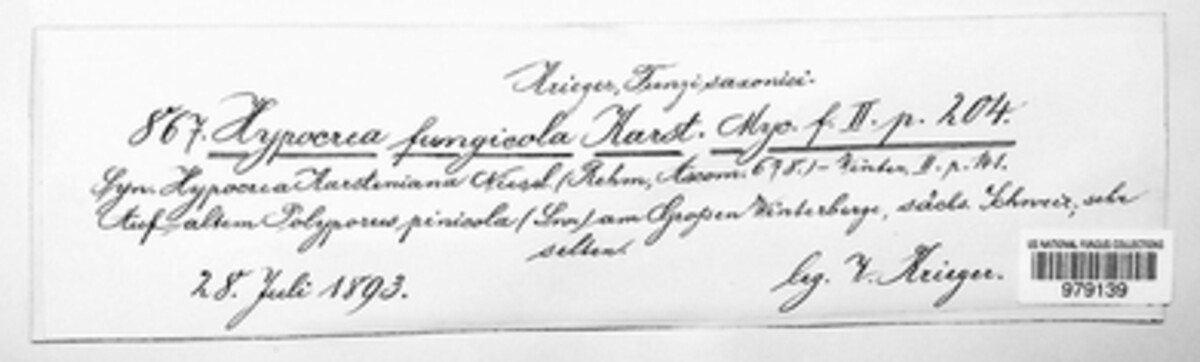 Krieger, Fungi saxonici.
867. Hypocrea fungicola Karst. Myc. f. II. p. 204.
Syn. Hypocrea Karsteniana Niessl (Rehm, Ascom. 678.) - Winter, II. p. 141.
Auf altem Polyporus pinicola (Sow.) am Großen Winterberge, sächs. Schweiz, sehr
selten.
28. Juli 1893.
leg. W. Krieger.
US NATIONAL FUNGUS COLLECTIONS
979139